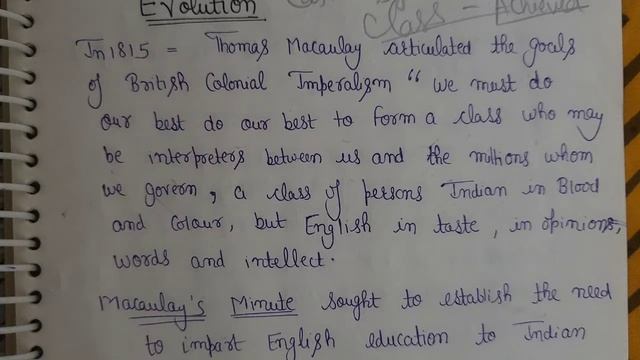 Evolution
Class - Achieved
In 1815 = Thomas Macaulay articulated the goals
of British Colonial Imperalism " we must do
our best do our best to form a class who may
be interpreters between us and the millions whom
we govern, a class of persons Indian in Blood
and Colour, but English in taste, in opinions,
words and intellect.
Macaulay's Minute sought to establish the need
to impart English education to Indian